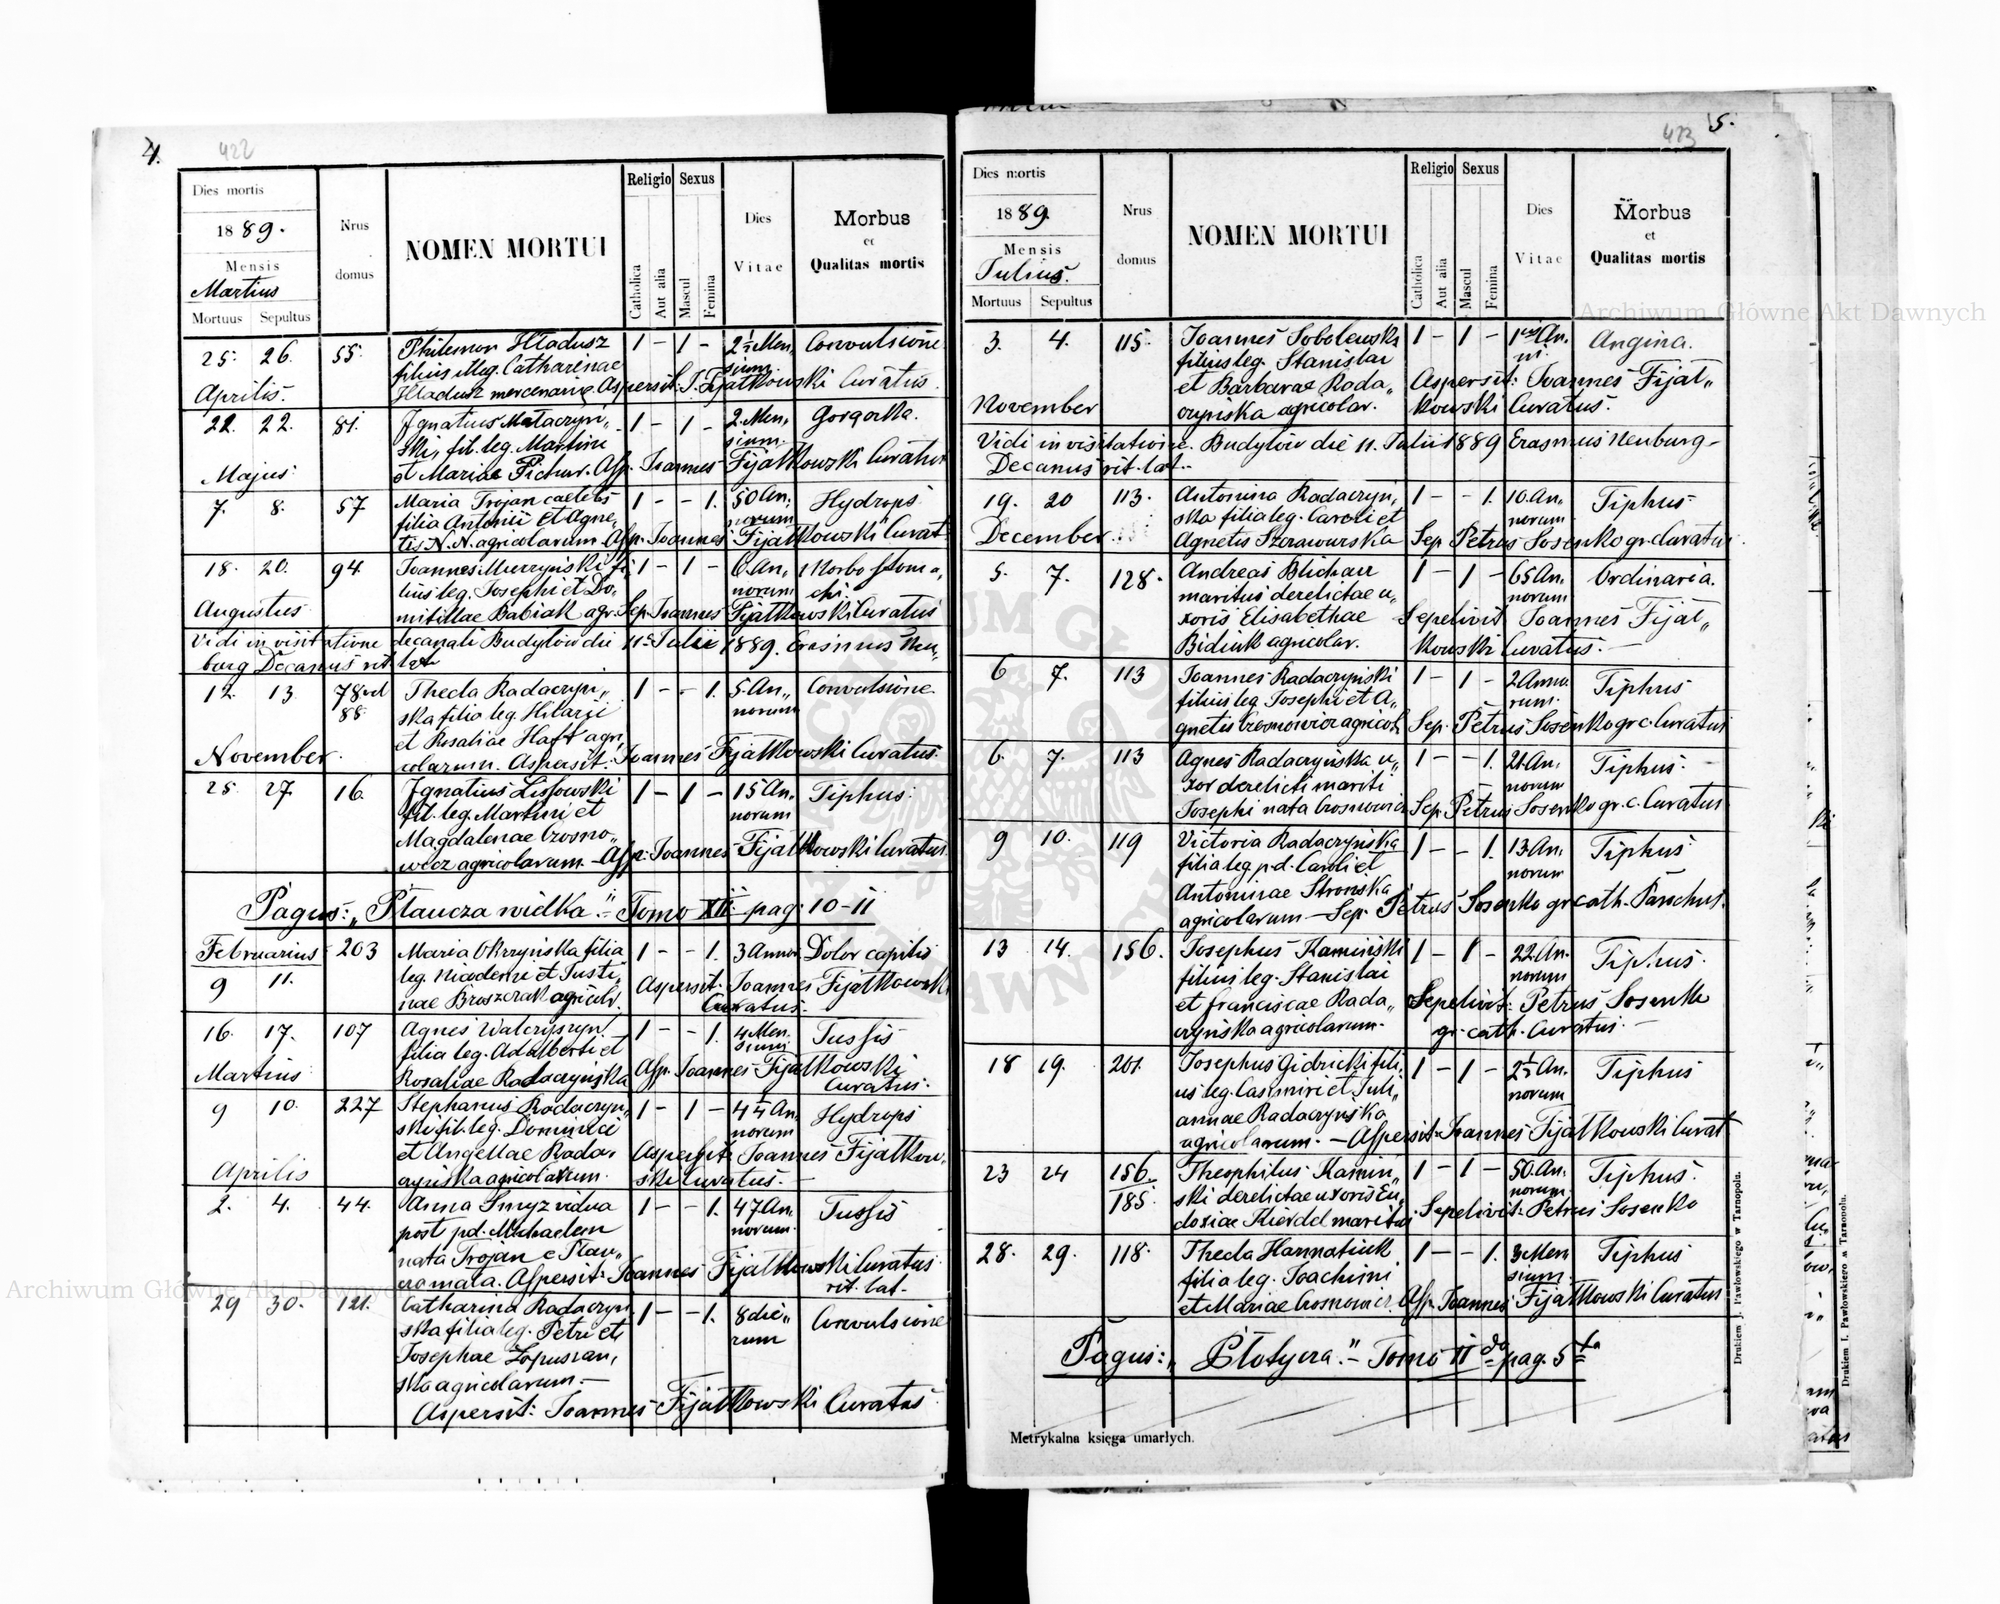 4.
422
Dies mortis
1889.
Mensis
Martius
Mortuus Sepultus
Nrus
domus
NOMEN MORTUI
Religio
Catholica
Aut alia
Sexus
Mascul
Femina
Dies
Vitae
Morbus
et
Qualitas mortis
25. 26. 55. Philemon Hładusz 1 – 1 – 2½ Men, Convulsione
filius illeg. Catharinae sium.
Hładusz mercenariae Aspersit: J. Fijałkowski Curatus.
Aprilis.
22. 22. 81. Ignatius Mataczyń, 1 – 1 – 2. Men, Gorączka.
ski, fil. leg. Martini sium.
et Mariae Asp. Joannes Fijałkowski Curatus
Majus:
7. 8. 57 Maria Trojan caelebs 1 – – 1. 50 An, Hydrops
filia Antonii et Agne, norum
tis N. N. agricolarum Asp. Joannes Fijałkowski Curat.
18. 20. 94. Joannes Murzyński fi, 1 – 1 – 6. An, Morbo stoma,
lius leg. Josephi et Do, norum chi.
mitillae Babiak agr. Sep. Joannes Fijałkowski Curatus
Augustus
Vidi in visitatione decanali Budyłów die 11. Julii 1889. Erasmus Neu,
burg Decanus rit. lat.
12. 13. 78 vel Thecla Radaczyń, 1 – – 1. 5. An, Convulsione.
88. ska filia leg. Hilarji norum
et Rosaliae Haft agri,
colarum. Aspersit: Joannes Fijałkowski Curatus.
November.
25. 27. 16. Ignatius Lisowski 1 – 1 – 15 An. Tiphus:
fil. leg. Martini et norum
Magdalenae Czosno,
wicz agricolarum – Asp: Joannes Fijałkowski Curatus.
Pagus: „Płaucza wielka." – Tomo XII. pag: 10–11
Februarius 203 Maria Okrzyńska filia 1 – – 1. 3 Annor. Dolor capitis
9 11. leg. Nicodemi et Justi,
nae agricol. Aspersit. Joannes Fijałkowski
Curatus. –
16. 17. 107 Agnes Walczyszyn 1 – – 1. 4 Men. Tussis
filia leg. Adalberti et sium
Rosaliae Radaczyńska Asp. Joannes Fijałkowski
Curatus.
Martius
9 10. 227 Stephanus Radaczyń, 1 – 1 – 4½ An. Hydrops
ski fil. leg. Dominici norum
et Angellae Rada, Aspersit: Joannes Fijałkow,
czyńska agricolarum. ski Curatus. –
Aprilis
2. 4. 44. Anna Smyz vidua 1 – – 1. 47 An. Tussis
post p.d. Michaelem norum.
nata Trojan e Płau,
cza mała. Aspersit: Joannes Fijałkowski Curatus
rit. lat.
29 30. 121. Catharina Radaczyń 1 – – 1. 8 die, Convulsione
ska filia leg. Petri et rum
Josephae Łopuszań,
ska agricolarum. –
Aspersit: Joannes Fijałkowski Curatus
5.
423
Dies mortis
1889.
Mensis
Julius.
Mortuus Sepultus
Nrus
domus
NOMEN MORTUI
Religio
Catholica
Aut alia
Sexus
Mascul
Femina
Dies
Vitae
Morbus
et
Qualitas mortis
3. 4. 115. Joannes Sobolewski 1 – 1 – An, Angina.
filius leg. Stanislai ni.
et Barbarae Rada, Aspersit: Joannes Fijał,
czyńska agricolar. kowski Curatus.
November
Vidi in visitatione. Budyłów die 11. Julii 1889 Erasmus Neuburg –
Decanus rit. lat. –
19. 20 113. Antonina Radaczyń, 1 – – 1. 10. An, Tiphus
ska filia leg. Caroli et norum
Agnetis Sep. Petrus Sosenko gr. Curatus.
December.
5. 7. 128. Andreas Blicharz 1 – 1 – 65 An. Ordinaria.
maritus derelictae u, norum
xoris Elisabethae Sepelivit Joannes Fijał,
agricolar. kowski Curatus. –
6 7. 113 Joannes Radaczyński 1 – 1 – 2 Anno. Tiphus
filius leg. Josephi et A, rum.
gnetis Czosnowicz agricol. Sep. Petrus Sosenko gr. c. Curatus
6. 7. 113 Agnes Radaczyńska u, 1 – – 1. 21. An, Tiphus. –
xor derelicti mariti norum
Josephi nata Czosnowicz Sep. Petrus Sosenko gr. c. Curatus
9 10. 119 Victoria Radaczyńska 1 – – 1. 13. An, Tiphus.
filia leg. p.d. Caroli et norum
Antoninae Strońska
agricolarum – Sep. Petrus Sosenko gr. cath. Parochus.
13 14. 156. Josephus Kamiński 1 – 1 – 22. An. Tiphus.
filius leg. Stanislai norum
et Franciscae Rada, Sepelivit: Petrus Sosenko
czyńska agricolarum. gr. cath. Curatus. –
18 19. 201. Josephus Gidricki fili, 1 – 1 – 2½ An. Tiphus
us leg. Casimiri et Juli, norum
annae Radaczyńska
agricolarum. – Aspersit: Joannes Fijałkowski Curat
23 24 156. Theophilus Kamiń, 1 – 1 – 50. An. Tiphus.
185. ski derelictae uxoris Eu, norum.
doxiae maritus Sepelivit: Petrus Sosenko
28. 29. 118. Thecla Harmatiuk 1 – – 1. 3 Men Tiphus
filia leg. Joachimi sium.
et Mariae Czosnowicz. Asp. Joannes Fijałkowski Curatus
Pagus: „Błotycza." – Tomo II da pag. 5 ta
Metrykalna księga umarłych.
Drukiem J. Pawłowskiego w Tarnopolu.
Drukiem I. Pawłowskiego w Tarnopolu.
Archiwum Główne Akt Dawnych
Archiwum Główne Akt Dawnych
ARCHIWUM GŁÓWNE AKT DAWNYCH